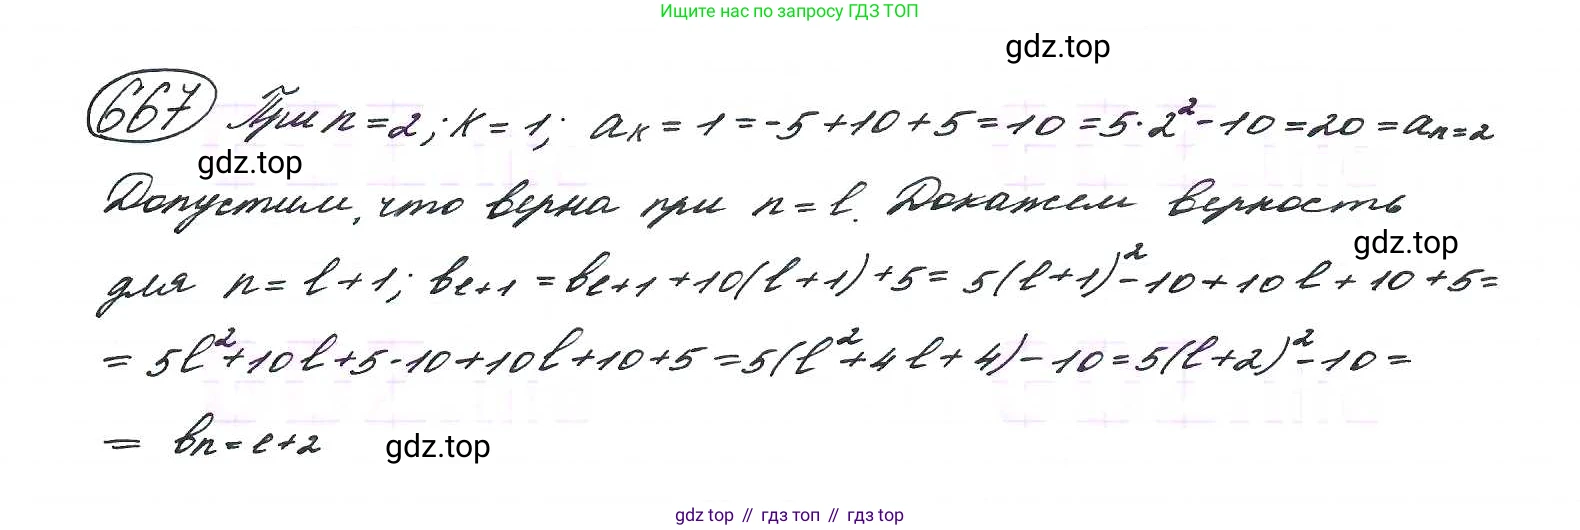 Ищите нас по запросу ГДЗ ТОП
gdz.top
667 При n = 2; к = 1; aк = 1 = -5 + 10 + 5 = 10 = 5·2² - 10 = 20 = an=2
gdz.top
Допустим, что верна при n = l. Докажем верность
gdz.top
для n = l + 1; вl+1 = вl+1 + 10(l + 1) + 5 = 5(l + 1)² - 10 + 10l + 10 + 5 =
= 5l² + 10l + 5 - 10 + 10l + 10 + 5 = 5(l² + 4l + 4) - 10 = 5(l + 2)² - 10 =
= вn = l + 2
gdz.top
gdz top // гдз топ // гдз top